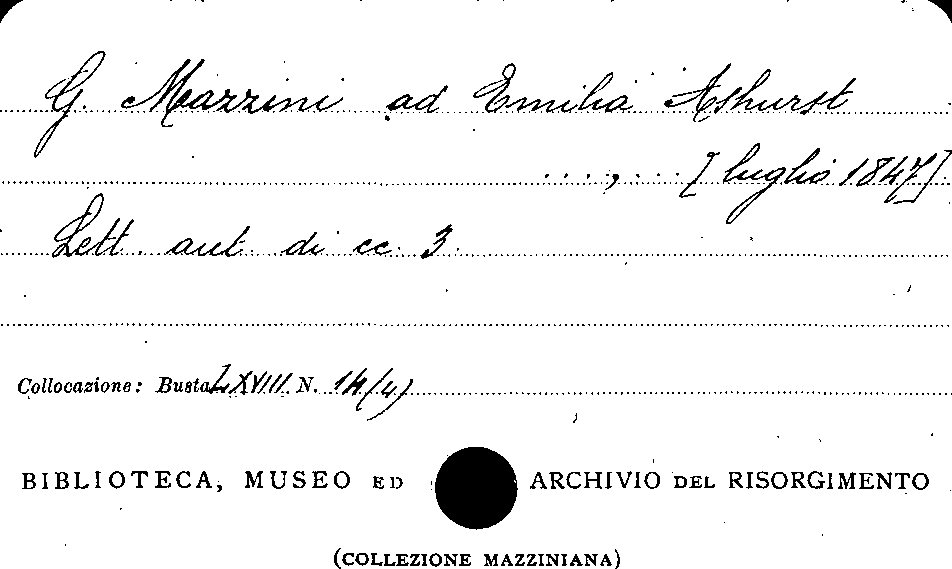 G. Mazzini ad Emilia Ashurst
...,... [luglio 1847]
Lett. aut. di cc. 3.
Collocazione: Busta LXVIII N. 14(4)
BIBLIOTECA, MUSEO ED ARCHIVIO DEL RISORGIMENTO
(COLLEZIONE MAZZINIANA)